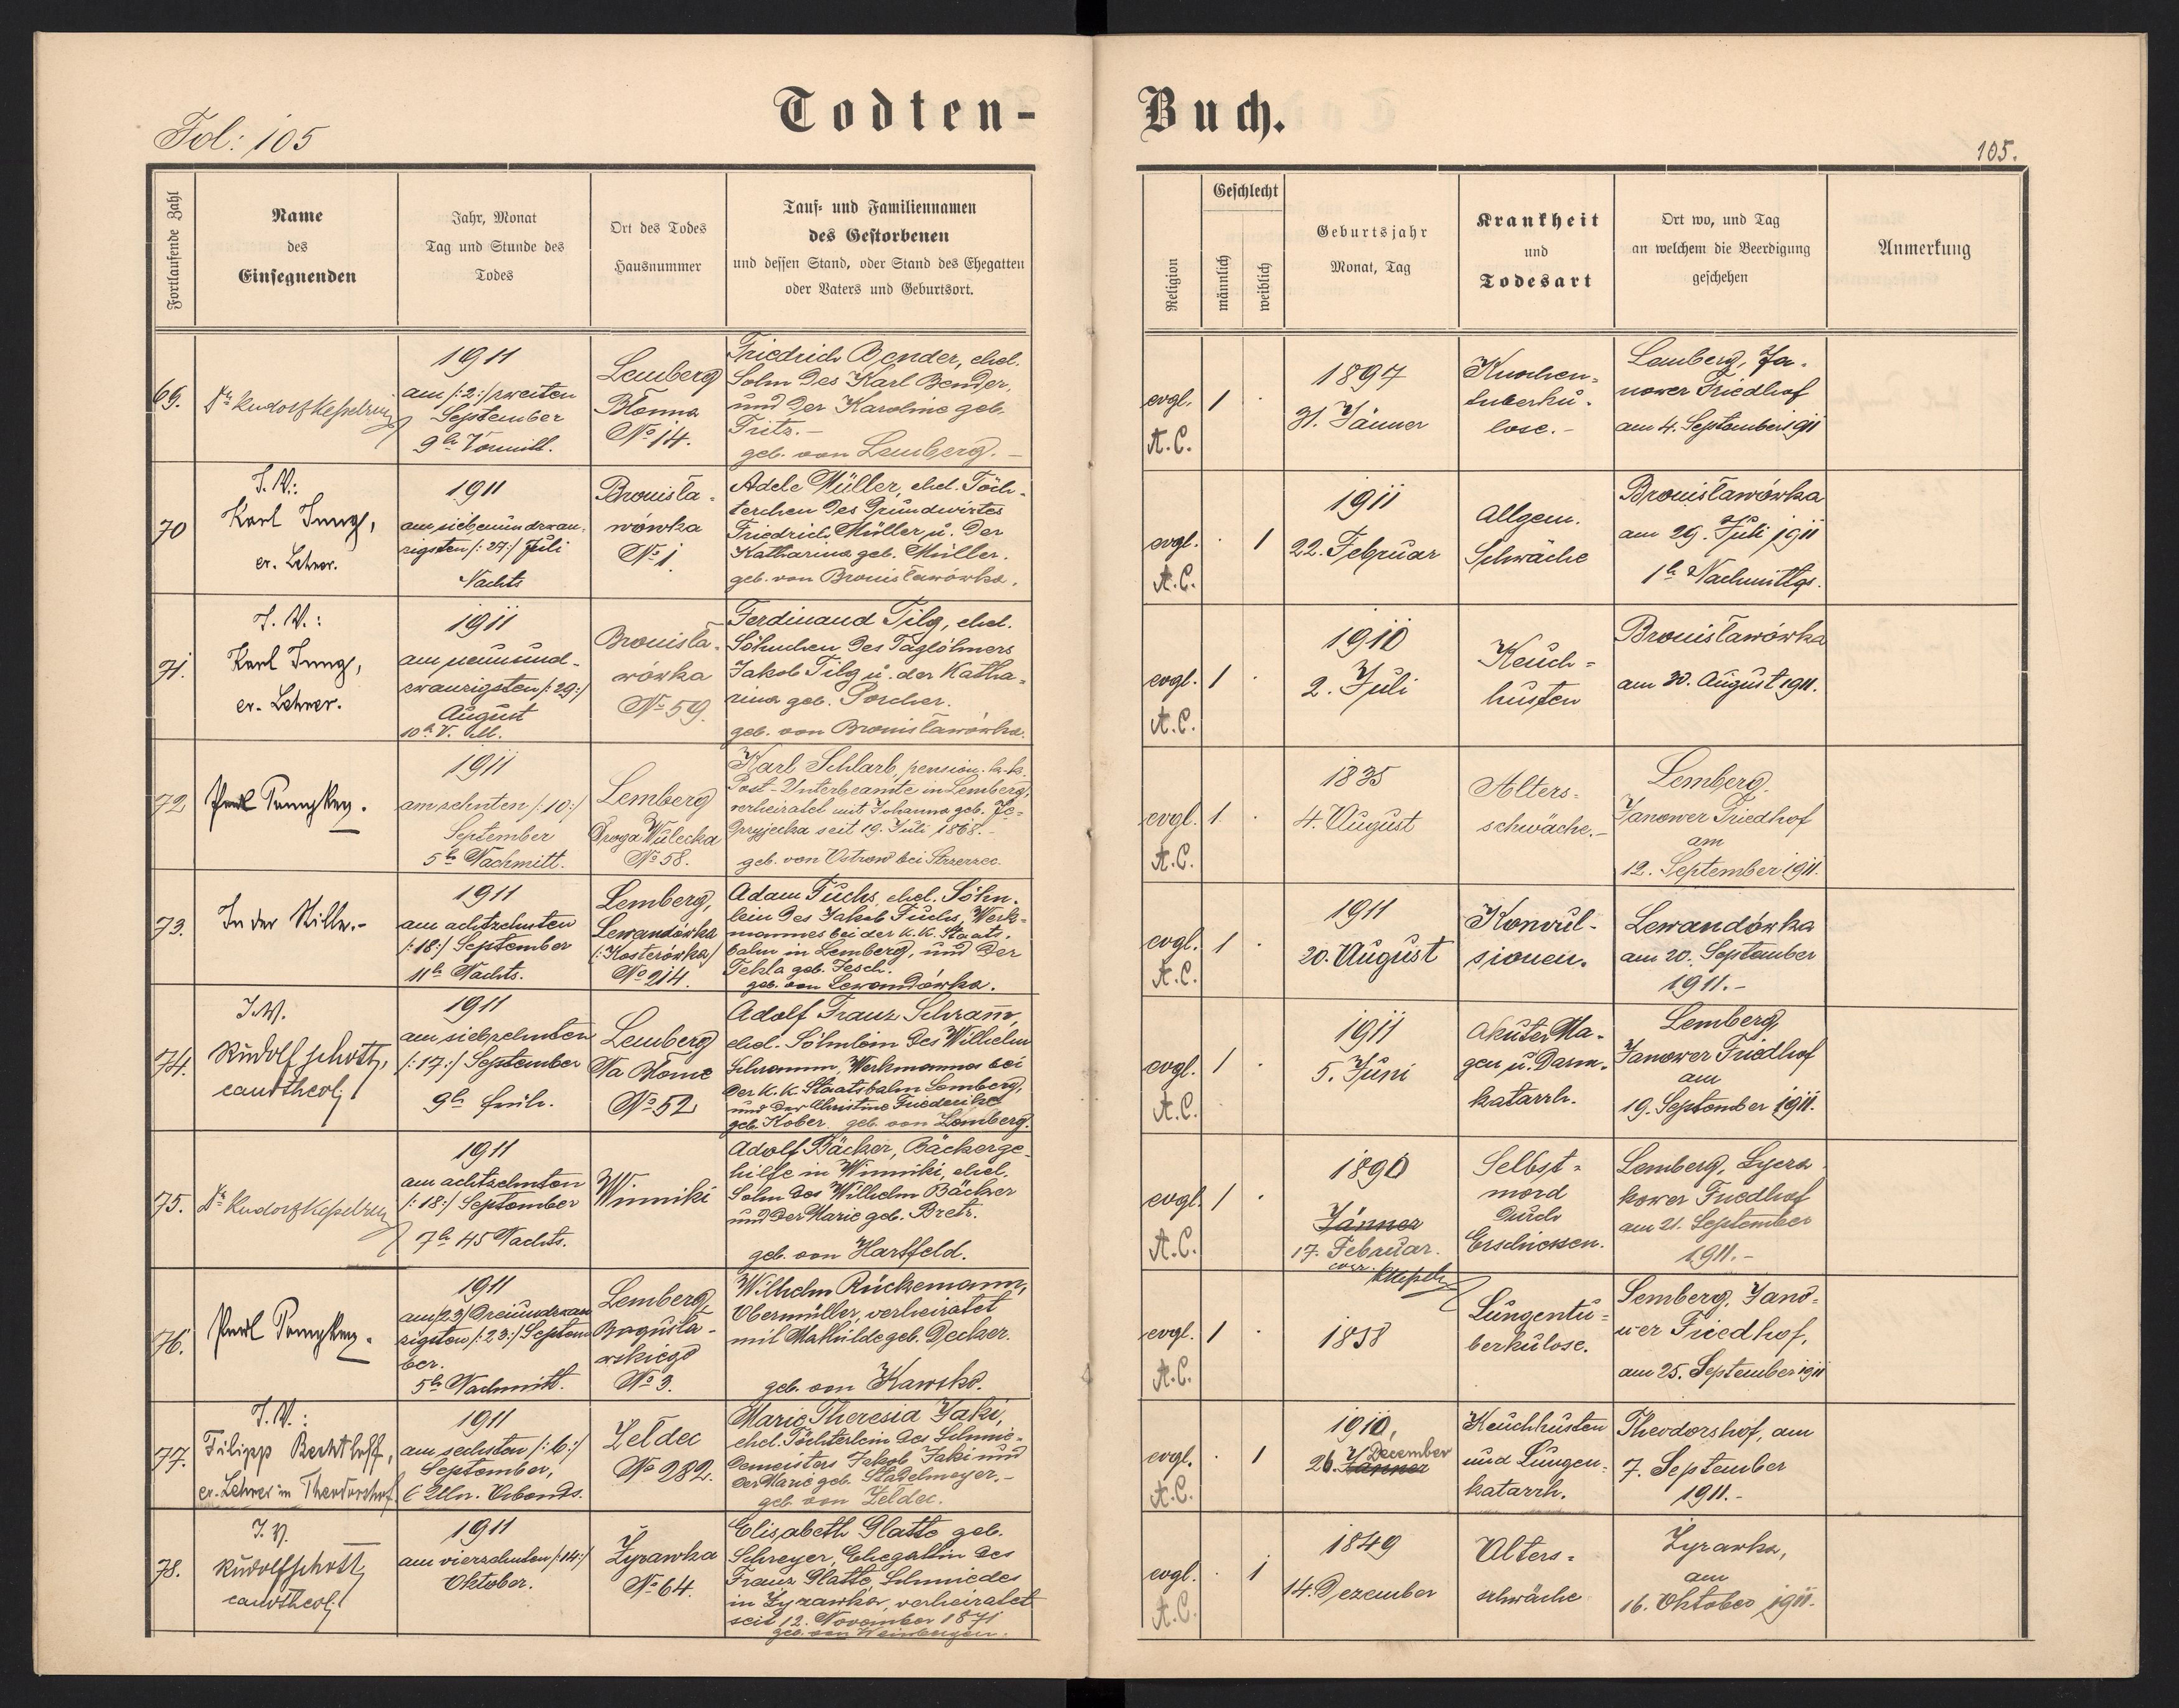 Fol: 105
Todten-
Buch.
105.
Fortlaufende Zahl
Name
des
Einsegnenden
Jahr, Monat
Tag und Stunde des
Todes
Ort des Todes
Hausnummer
Tauf- und Familiennamen
des Gestorbenen
und dessen Stand, oder Stand des Ehegatten
oder Vaters und Geburtsort.
Religion
Geschlecht
männlich
weiblich
Geburtsjahr
Monat, Tag
Krankheit
und
Todesart
Ort wo, und Tag
an welchem die Beerdigung
geschehen
Anmerkung
69.
Dr Rudolf Kesselring
1911
am /:2:/ zweiten
September
9h Vormitt.
Lemberg
Błonna
No 14.
Friedrich Bender, ehel.
Sohn des Karl Bender,
und der Karoline geb.
Fritz.-
geb. von Lemberg.-
evgl.
A.C.
1
1897
31. Jänner
Knochen-
tuberku-
lose.-
Lemberg, Ja-
nower Friedhof
am 4. September 1911
70
I.V.:
Karl Jung,
ev. Lehrer.
1911
am siebenundzwan-
zigsten /:27:/ Juli
Nachts
Bronisła-
wówka
No 1
Adele Müller, ehel. Töch-
terchen des Grundwirtes
Friedrich Müller u. der
Katharina geb. Müller.
geb. von Bronisławówka.
evgl.
A.C.
1
1911
22. Februar
Allgem.
Schwäche
Bronisławówka
am 29. Juli 1911
1h Nachmittgs.
71.
I.V.:
Karl Jung,
ev. Lehrer.
1911
am neunund-
zwanzigsten /:29:/
August
10h V. M.
Bronisła-
wówka
No 59.
Ferdinand Tilg, ehel.
Söhnchen des Taglöhners
Jakob Tilg u. der Katha-
rina geb. Porcher.
geb. von Bronisławówka.
evgl.
A.C.
1
1910
2. Juli
Keuch-
husten
Bronisławówka
am 30. August 1911.
72
1911
am zehnten /:10:/
September
5h Nachmitt.
Lemberg
Droga Wulecka
No 58.
Karl Schlarb, pension. k.k.
Post-Unterbeamte in Lemberg,
verheiratet mit Johanna geb.
seit 19. Juli 1868.-
geb. von Ostrow bei
evgl.
A.C.
1.
1835
4. August
Alters-
schwäche.-
Lemberg.
Janower Friedhof
am
12. September 1911.
73.
In der Stille.-
1911
am achtzehnten
/:18:/ September
11h Nachts.
Lemberg,
Lewandówka
/:Kosterówka/
No 214.
Adam Fuchs, ehel. Söhn-
lein des Jakob Fuchs, Werk-
mannes bei der k.k. Staats-
bahn in Lemberg, und der
Tekla geb. Jesch.
geb. von Lewandówka.
evgl.
A.C.
1
1911
20. August
Konvul-
sionen.
Lewandówka
am 20. September
1911.-
74.
I.V.
Rudolf Schott,
cand theol.
1911
am siebzehnten
/:17:/ September
9h früh.
Lemberg
Na Błonie
No 52
Adolf Franz Schram̄,
ehel. Söhnlein des Wilhelm
Schramm, Werkmannes bei
der k.k. Staatsbahn Lemberg,
und der Christine Friederike
geb. Kober. geb. von Lemberg.
evgl.
A.C.
1
1911
5. Juni
Akuter Ma-
gen u. Darm-
katarrh.
Lemberg
Janower Friedhof
am
19. September 1911.
75.
Dr Rudolf Kesselring
1911
am achtzehnten
/:18:/ September
7h 45 Nachts.
Winniki
Adolf Bäcker, Bäckerge-
hilfe in Winniki, ehel.
Sohn des Wilhelm Bäcker
und der Marie geb. Bretz.
geb. von Hartfeld.
evgl.
A.C.
1
1890
Jänner
17. Februar.
corr.
Selbst-
mord
durch
Erschiessen.
Lemberg, Lycza-
kower Friedhof
am 21. September
1911.-
76.
1911
am /23/ dreiundzwan
zigsten /:23:/ Septem
ber.
5h Nachmitt.
Lemberg
Bogusła-
wskiego
No 3.
Wilhelm Rückemann,
Obermüller, verheiratet
mit Mathilde geb. Decker.
geb. von Kawsko.
evgl.
A.C.
1
1858
Lungentu-
berkulose.
Lemberg, Jano-
wer Friedhof,
am 25. September 1911
77.
I.V.:
Filipp Bechtloff,
ev. Lehrer in Theodorshof
1911
am sechsten /:6:/
September,
6 Uhr. Abends.
Żeldec
No 282.
Marie Theresia Jaki,
ehel. Töchterlein des Schmie-
demeisters Jakob Jaki und
der Marie geb. Stadelmeyer.-
geb. von Żeldec.
evgl.
A.C.
1
1910,
December
26. Jänner
Keuchhusten
und Lungen-
katarrh.
Theodorshof, am
7. September
1911.-
78.
I.V.
Rudolf Schott
cand theol.
1911
am vierzehnten /:14:/
Oktober.
Żyrawka
No 64.
Elisabeth Glatte geb.
Schreyer, Ehegattin des
Franz Glatte, Schmiedes
in Żyrawka, verheiratet
seit 12. November 1871
geb. von Weinbergen.
evgl.
A.C.
1
1849
14. Dezember
Alters-
schwäche
Żyrawka,
am
16. Oktober 1911.